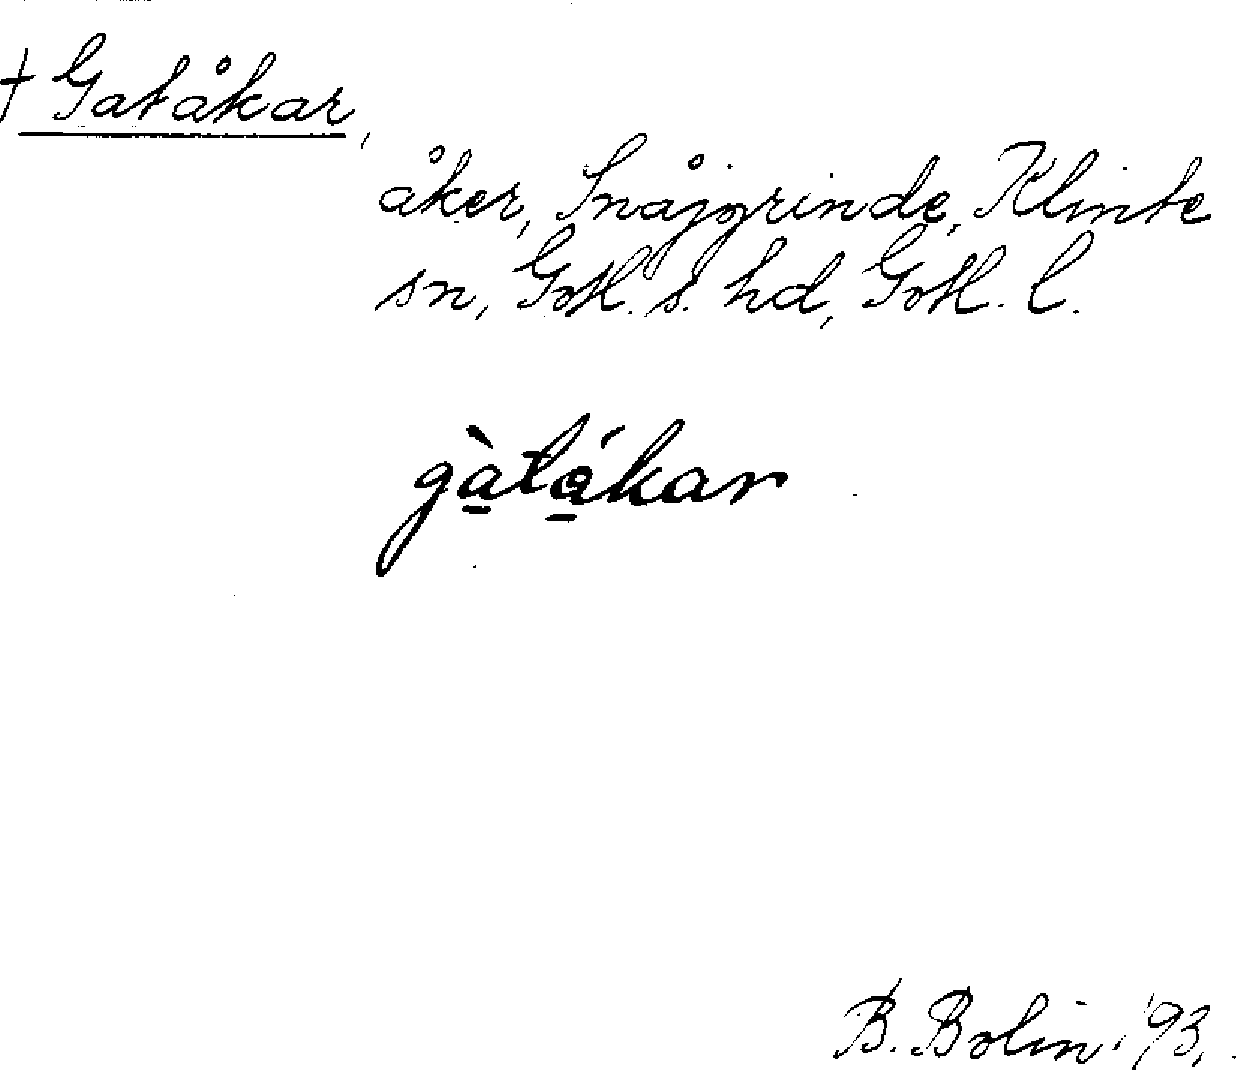 † Gatåkar,
åker, Snåjgrinde, Klinte
sn, Gotl. s. hd, Gotl. l.
gàtákar
B. Bolin '93.